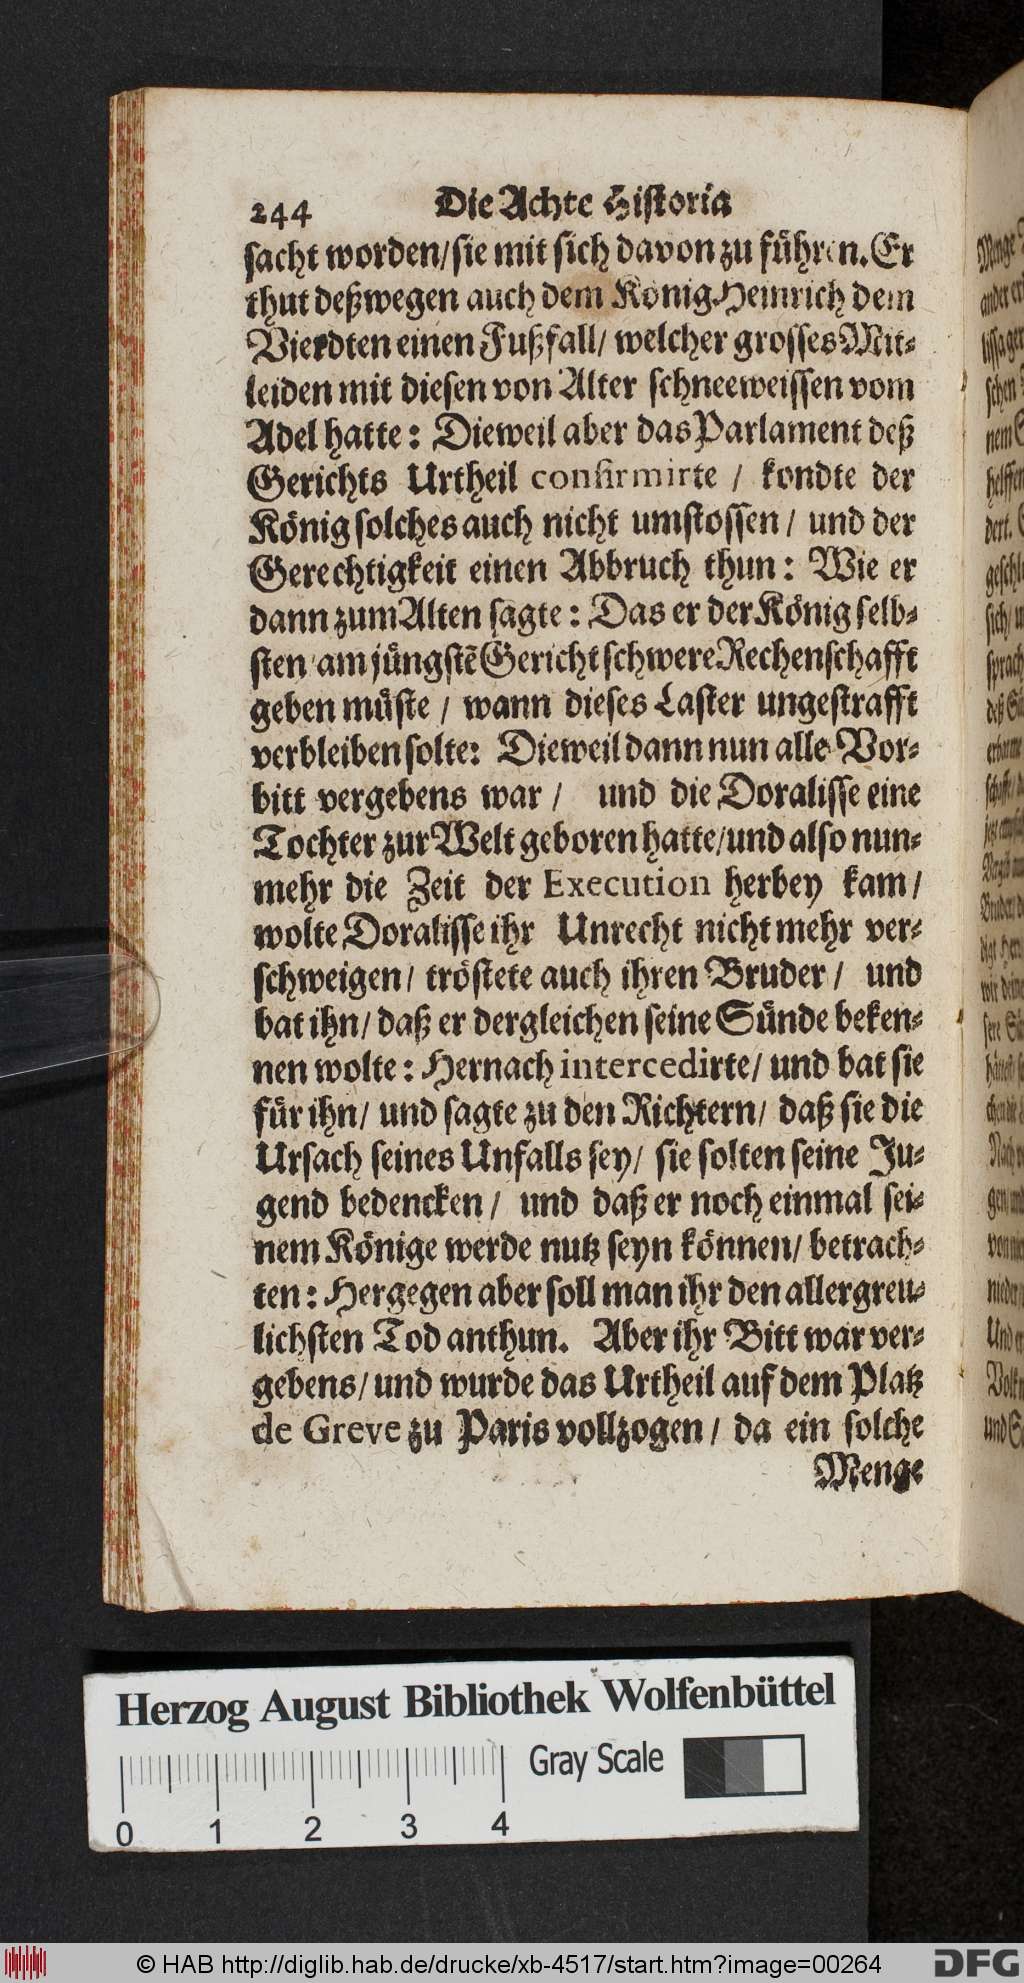 244 Die Achte Historia
sacht worden/ sie mit sich davon zu führen. Er
thut deßwegen auch dem König Heinrich dem
Vierdten einen Fußfall/ welcher grosses Mit-
leiden mit diesen von Alter schneeweissen vom
Adel hatte: Dieweil aber das Parlament deß
Gerichts Urtheil confirmirte / kondte der
König solches auch nicht umstossen / und der
Gerechtigkeit einen Abbruch thun: Wie er
dann zum Alten sagte: Das er der König selb-
sten am jüngstẽ Gericht schwere Rechenschafft
geben müste / wann dieses Laster ungestrafft
verbleiben solte: Dieweil dann nun alle Vor-
bitt vergebens war / und die Doralisse eine
Tochter zur Welt geboren hatte/ und also nun-
mehr die Zeit der Execution herbey kam /
wolte Doralisse ihr Unrecht nicht mehr ver-
schweigen / tröstete auch ihren Bruder / und
bat ihn/ daß er dergleichen seine Sünde beken-
nen wolte: Hernach intercedirte/ und bat sie
für ihn/ und sagte zu den Richtern/ daß sie die
Ursach seines Unfalls sey/ sie solten seine Ju-
gend bedencken / und daß er noch einmal sei-
nem Könige werde nutz seyn können/ betrach-
ten: Hergegen aber soll man ihr den allergreu-
lichsten Tod anthun. Aber ihr Bitt war ver-
gebens/ und wurde das Urtheil auf dem Platz
de Greve zu Paris vollzogen / da ein solche
Menge
Herzog August Bibliothek Wolfenbüttel
Gray Scale
0 1 2 3 4
© HAB http://diglib.hab.de/drucke/xb-4517/start.htm?image=00264
DFG